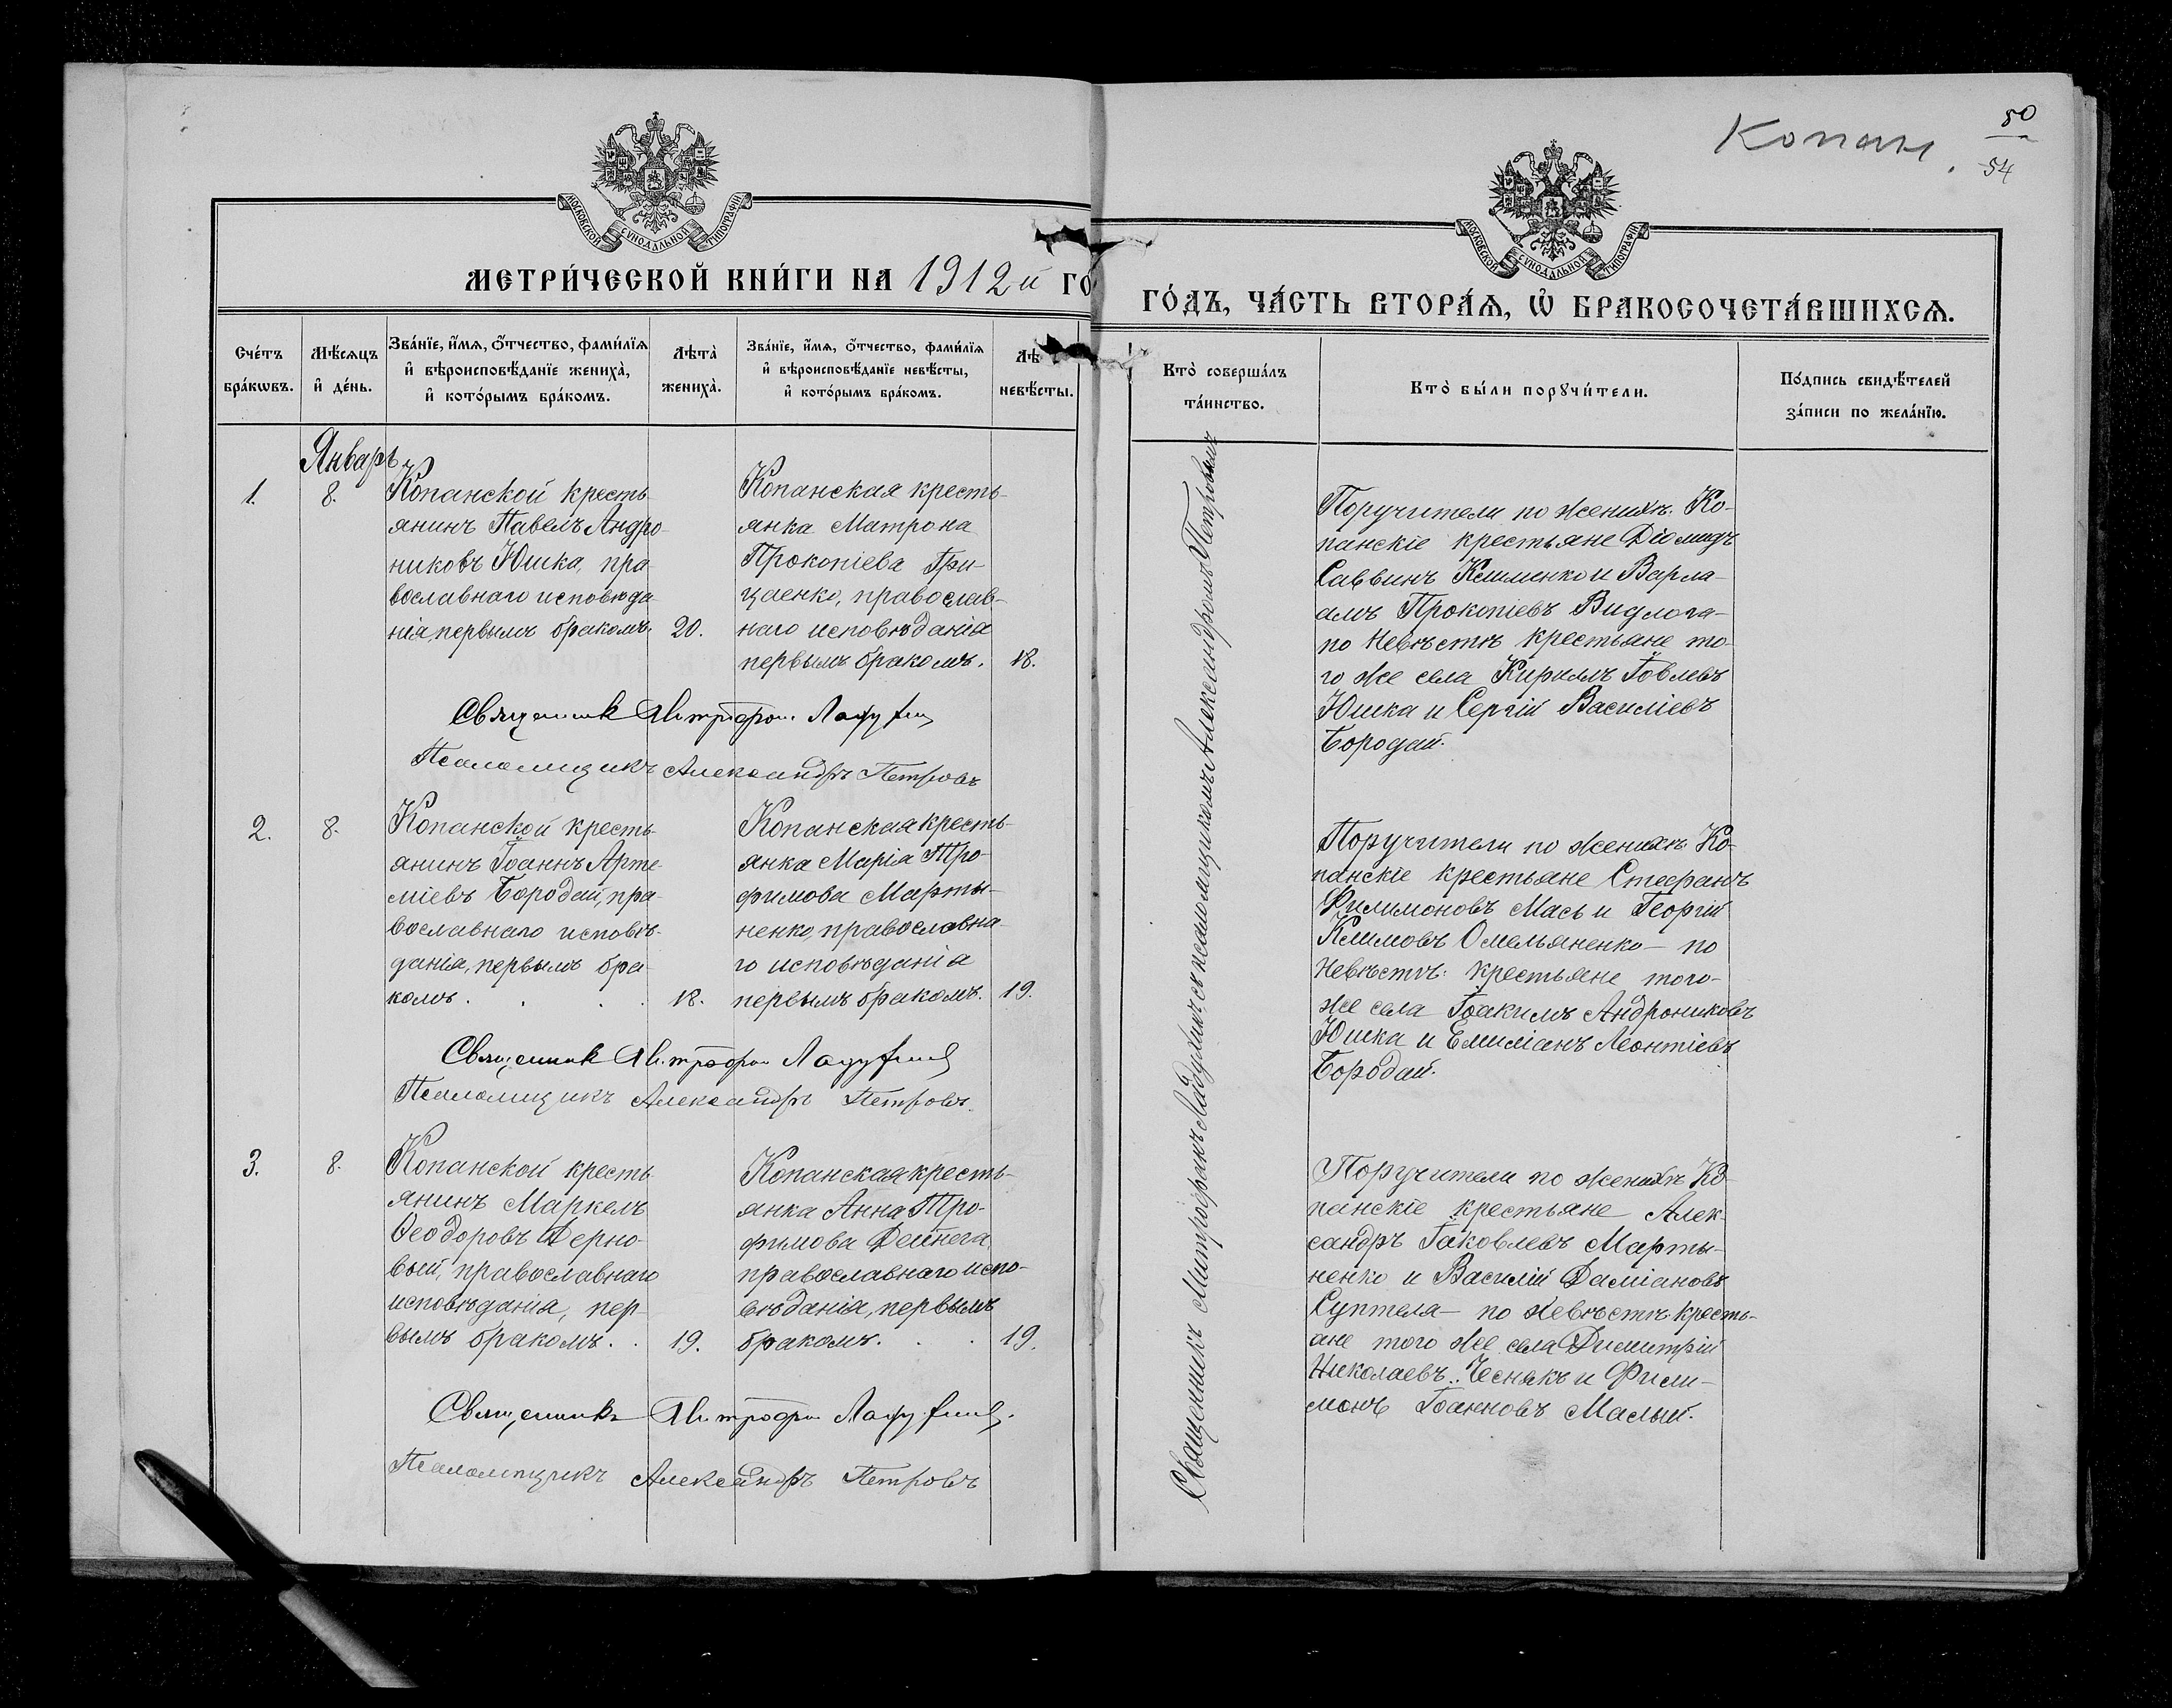 Копани.
50
54
МОСКОВСКОЙ СѴНОДАЛЬНОЙ ТИПОГРАФІИ
МОСКОВСКОЙ СѴНОДАЛЬНОЙ ТИПОГРАФІИ
МЕТРИ́ЧЕСКОЙ КНИ́ГИ НА 1912й ГО
ГО́ДЪ, ЧА́СТЬ ВТОРА́Ѧ, Ѡ҆ БРАКОСОЧЕТА́ВШИХСѦ.
Сче́тъ бра́кѡвъ.
Мѣ́сѧцъ и҆ де́нь.
Зва́нїе, и҆́мѧ, ѻ҆́тчество, фами́лїѧ
и҆ вѣроисповѣ́данїе жениха̀,
и҆ кото́рымъ бра́комъ.
Лѣта̀ жениха̀.
Зва́нїе, и҆́мѧ, ѻ҆́тчество, фами́лїѧ
и҆ вѣроисповѣ́данїе невѣ́сты,
и҆ кото́рымъ бра́комъ.
Лѣ
невѣ́сты.
Кто̀ соверша́лъ
та́инство.
Кто̀ бы́ли порꙋчи́тели.
По́дпись свидѣ́телей
за́писи по жела́нїю.
Январь
1.
8.
Копанской кресть-
янинъ Павелъ Андро-
никовъ Юшка, пра-
вославнаго исповѣда-
нія, первымъ бракомъ.
20.
Копанская кресть-
янка Матрона
Прокопіева Гри-
цаенко, православ-
наго исповѣданія
первымъ бракомъ.
18.
Поручители по женихѣ: Ко-
панскіе крестьяне Діомидъ
Саввинъ Клименко и Варла-
амъ Прокопіевъ Видлога-
по невѣстѣ крестьяне то-
го же села Кириллъ Іовлевъ
Юшка и Сергій Василіевъ
Бородай.
Священникъ Митрофанъ
Псаломщикъ Александръ Петровъ
2.
8.
Копанской кресть-
янинъ Іоаннъ Арте-
міевъ Бородай, пра-
вославнаго исповѣ-
данія, первымъ бра-
комъ.
18.
Копанская кресть-
янка Марія Тро-
фимова Марты-
ненко, православна-
го исповѣданія
первымъ бракомъ.
19.
Поручители по женихѣ: Ко-
панскіе крестьяне Стефанъ
Филимоновъ Мась и Георгій
Климовъ Омельяненко - по
невѣстѣ: крестьяне того-
же села Іоакимъ Андрониковъ
Юшка и Емиліанъ Леонтіевъ
Бородай.
Священникъ Митрофанъ
Псаломщикъ Александръ Петровъ.
3.
8.
Копанской кресть-
янинъ Маркелъ
Ѳеодоровъ Дерно-
вый, православнаго
исповѣданія, пер-
вымъ бракомъ.
19.
Копанская кресть-
янка Анна Тро-
фимова Дейнега,
православнаго испо-
вѣданія, первымъ
бракомъ.
19.
Поручители по женихѣ Ко-
панскіе крестьяне Алек-
сандръ Іаковлевъ Марты-
ненко и Василій Даміановъ
Суптеля - по невѣстѣ: кресть-
яне того же села Димитрій
Николаевъ Чеснякъ и Фили-
монъ Іоанновъ Малый.
Священникъ Митрофанъ
Псаломщикъ Александръ Петровъ
Священникъ Митрофанъ съ псаломщикомъ Александромъ Петровымъ